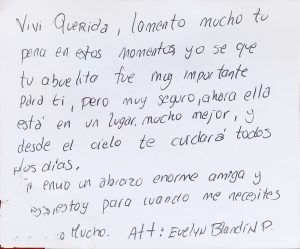 Vivi Querida, lamento mucho tu
pena en estos momentos, yo se que
tu abuelita fue muy importante
para ti, pero muy seguro, ahora ella
está en un lugar mucho mejor, y
desde el cielo te cuidará todos
los días.
envio un abrazo enorme amiga y
estoy para cuando me necesites
Mucho. Att: Evelyn Blandín P.